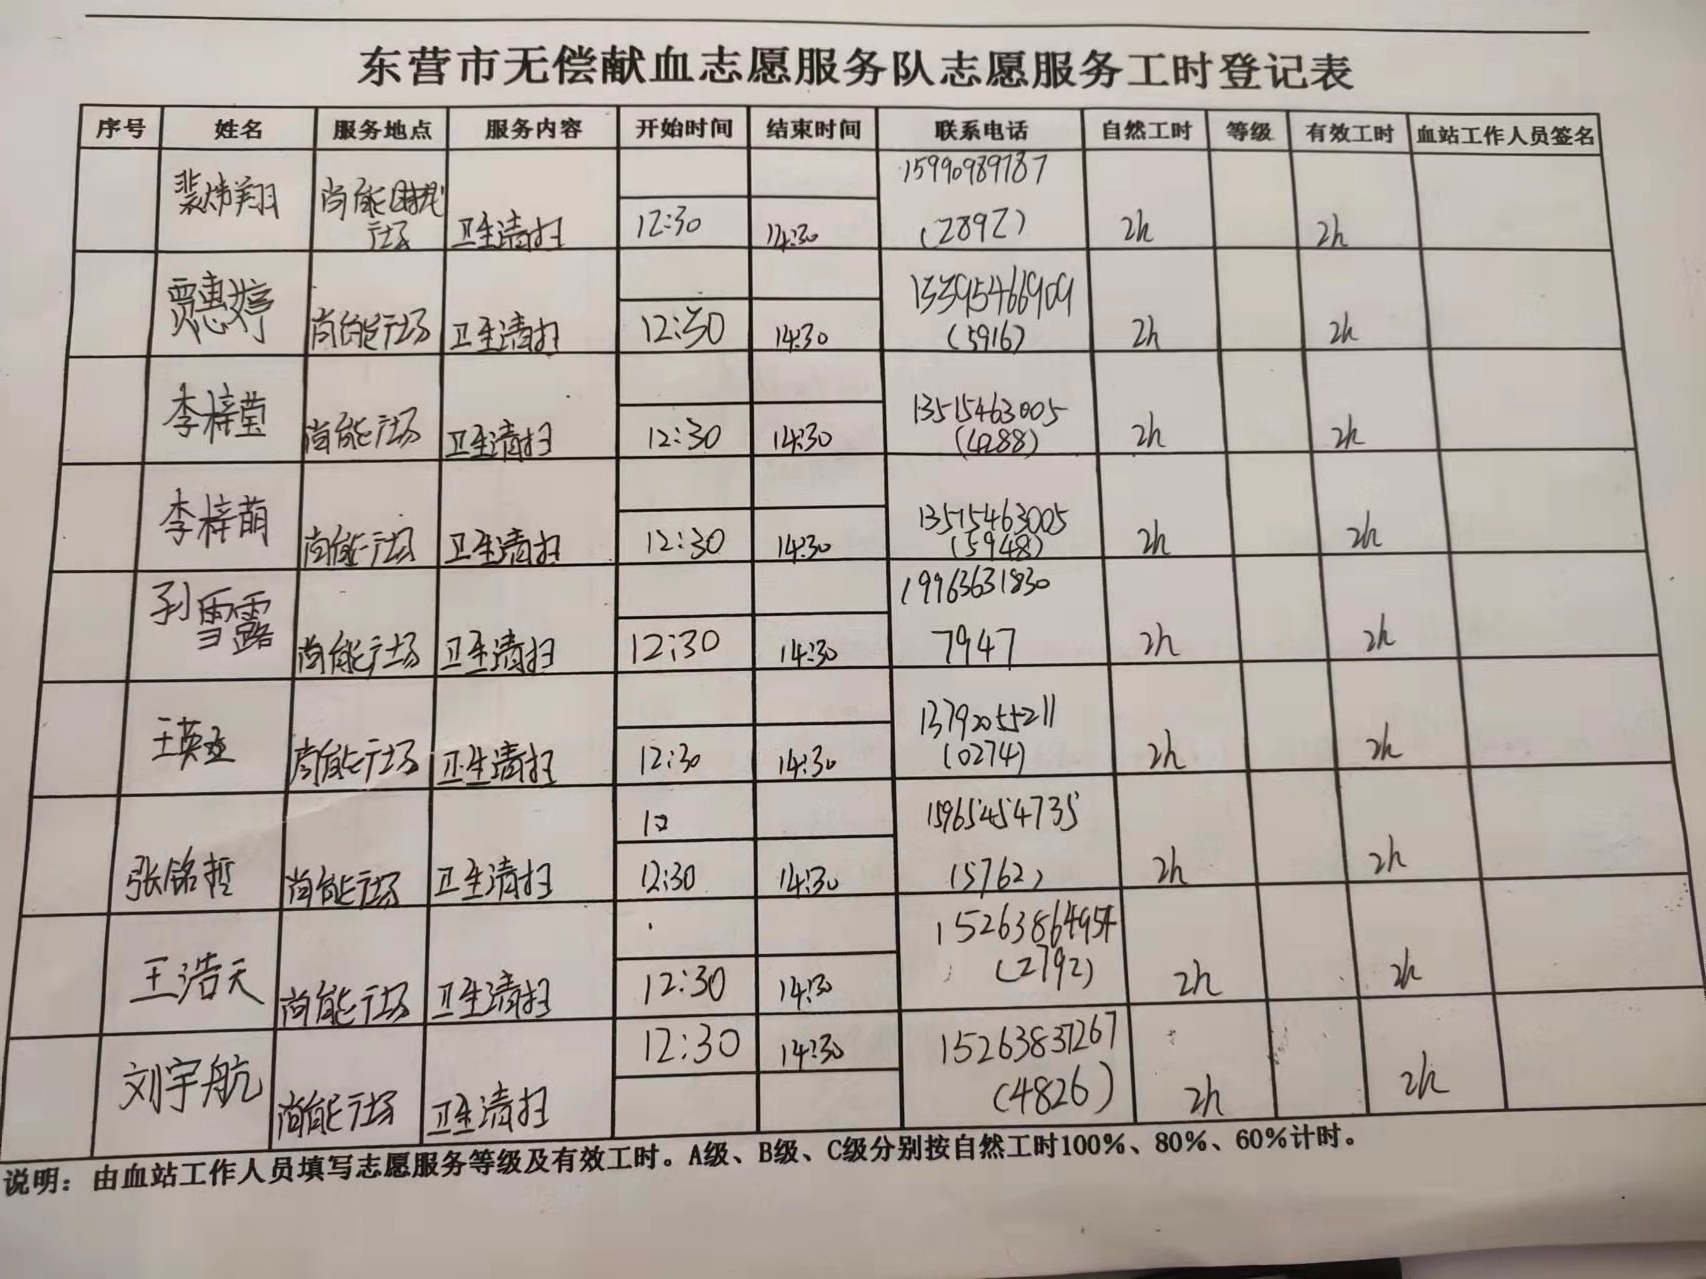 东营市无偿献血志愿服务队志愿服务工时登记表
序号 姓名 服务地点 服务内容 开始时间 结束时间 联系电话 自然工时 等级 有效工时 血站工作人员签名
15990989787
裴炜翔 尚能 卫生清扫 12:30 14:30 (2892) 2h 2h
广场
13395466909
贾惠婷 尚能广场 卫生清扫 12:30 14:30 (5916) 2h 2h
13515463005
李梓莹 尚能广场 卫生清扫 12:30 14:30 (4288) 2h 2h
13515463005
李梓萌 尚能广场 卫生清扫 12:30 14:30 (5948) 2h 2h
19963631830
孙雪露 尚能广场 卫生清扫 12:30 14:30 7947 2h 2h
13792055211
王英 尚能广场 卫生清扫 12:30 14:30 (0274) 2h 2h
15965454735
张铭哲 尚能广场 卫生清扫 12:30 14:30 (5762) 2h 2h
15263864954
王浩天 尚能广场 卫生清扫 12:30 14:30 (2792) 2h 2h
12:30 14:30 15263837267
刘宇航 尚能广场 卫生清扫 (4826) 2h 2h
说明：由血站工作人员填写志愿服务等级及有效工时。A级、B级、C级分别按自然工时100%、80%、60%计时。